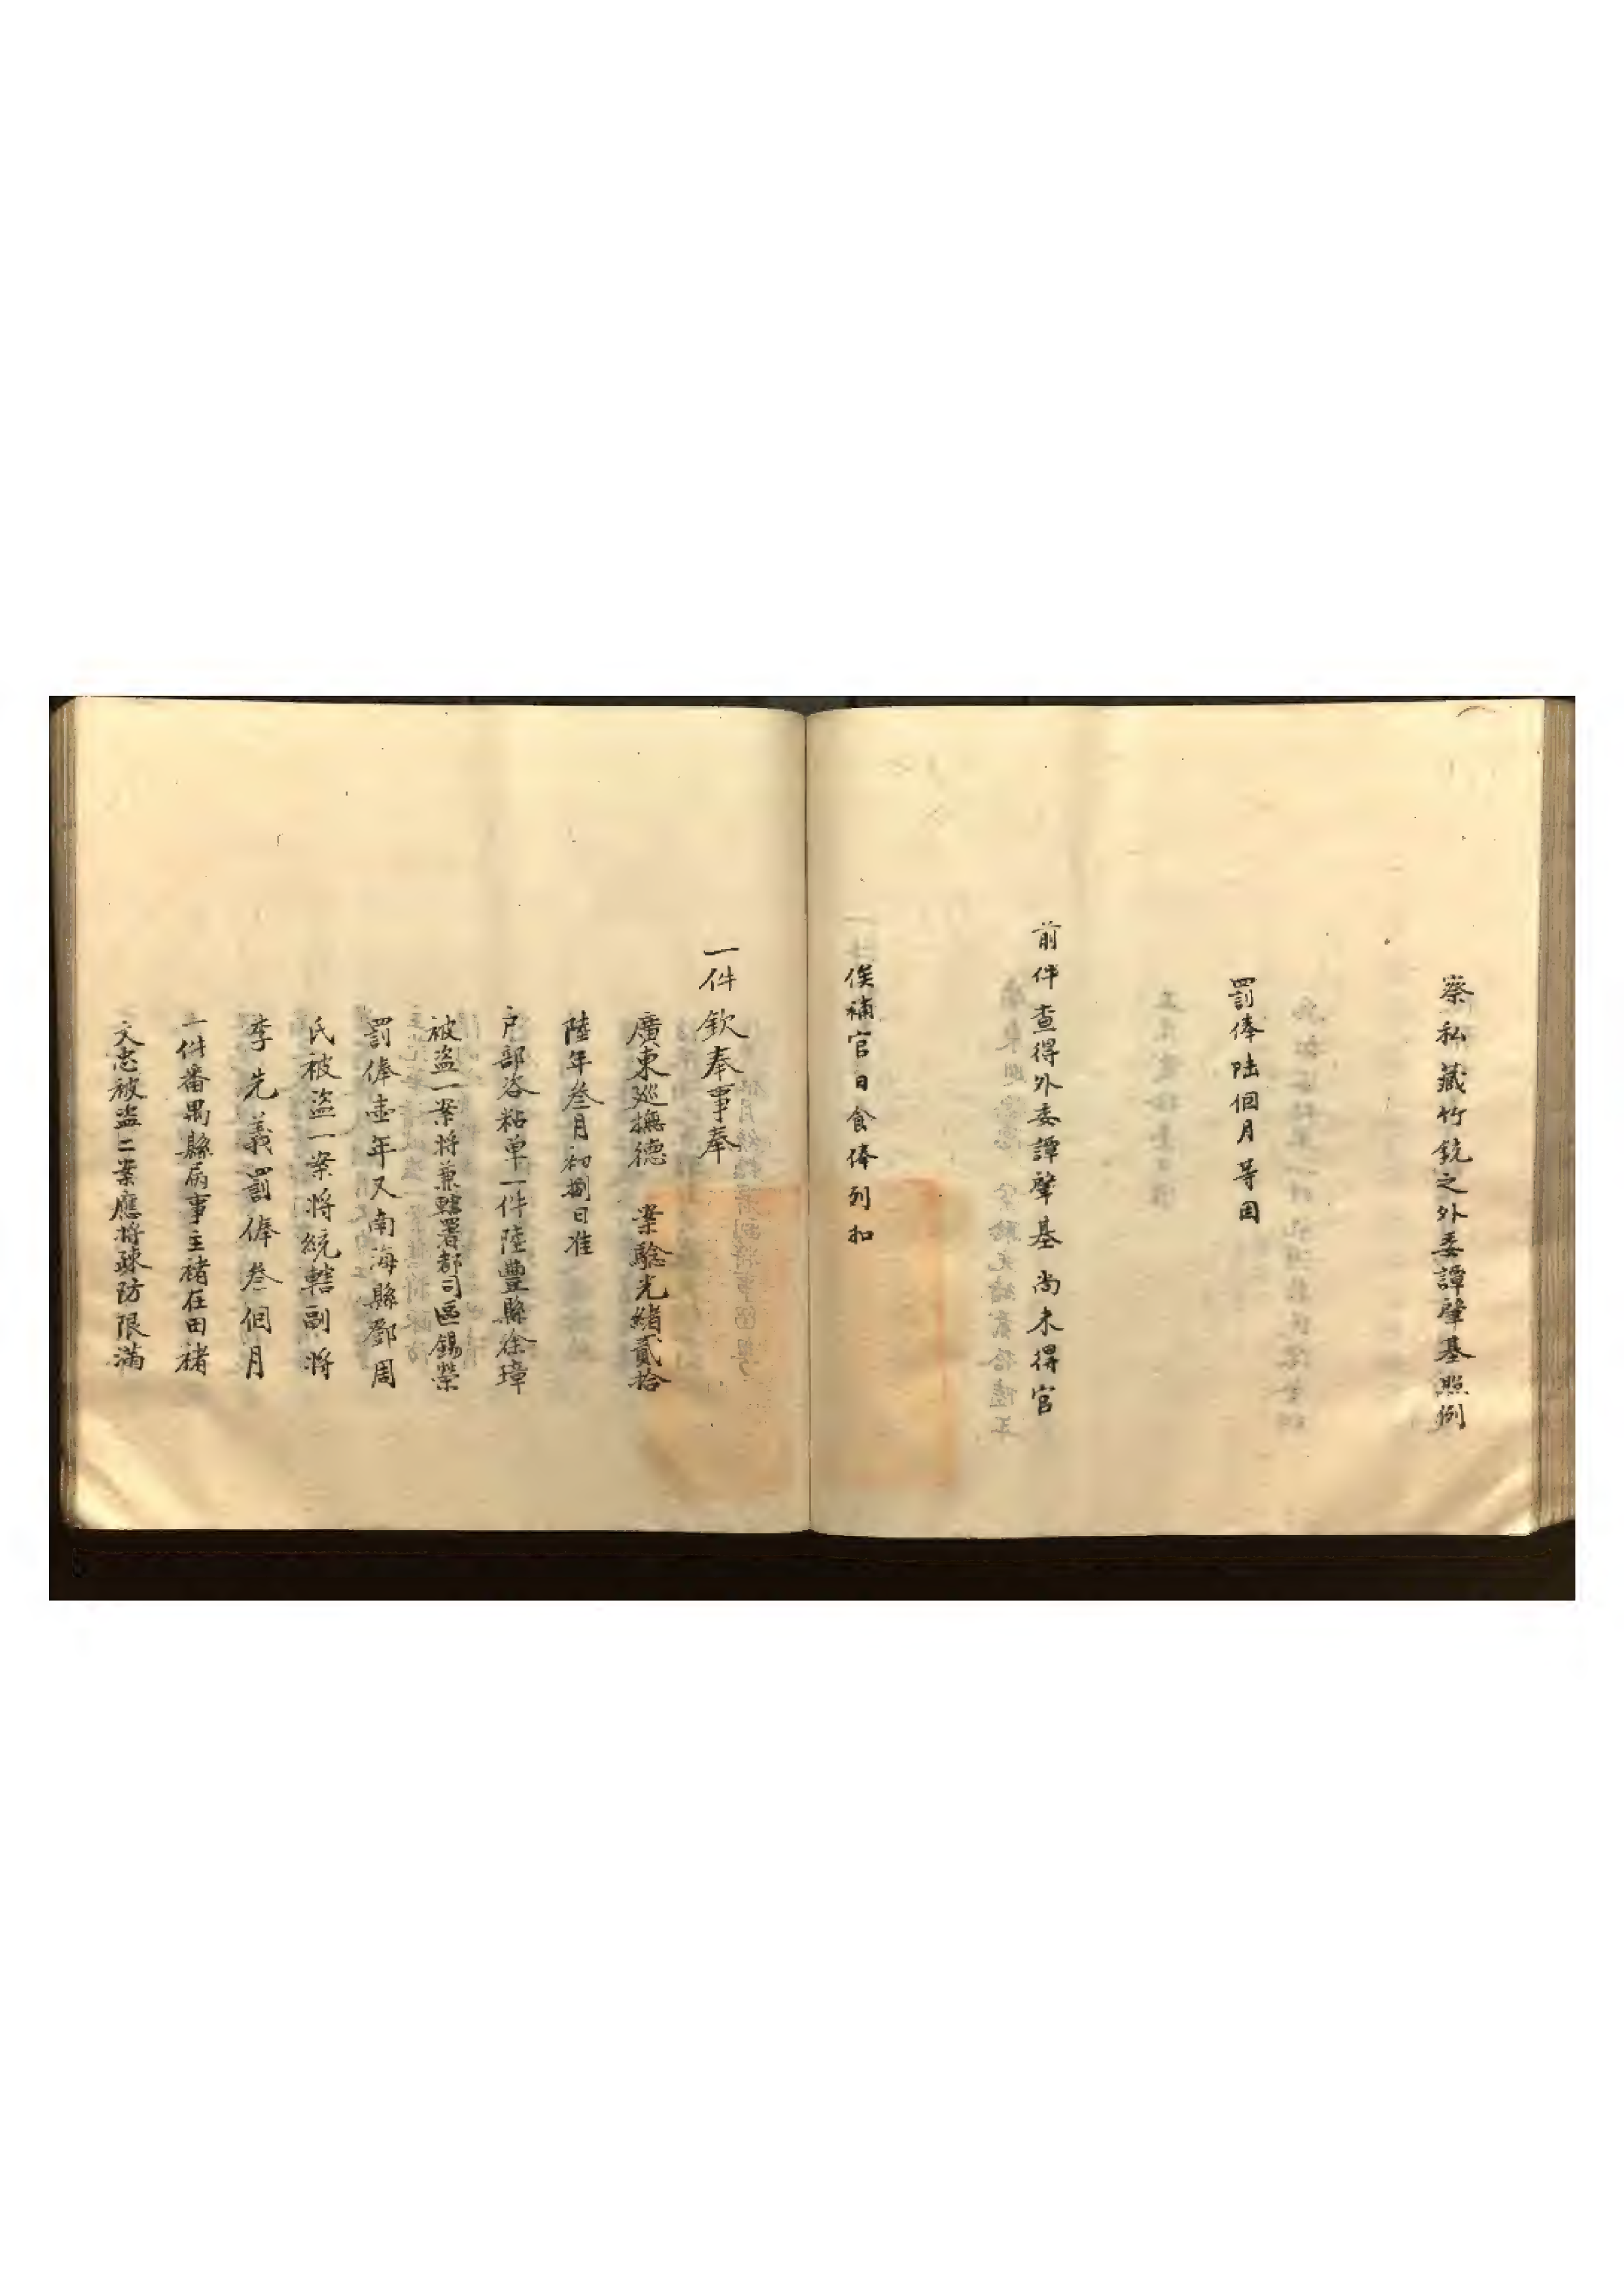 察私藏竹銃之外委譚肇基照例
罰俸陆個月等因
前件查得外委譚肇基尚未得官
俟補官日食俸列扣
一件欽奉事奉
廣東廵撫德 案驗光緒貳拾
陸年叁月初捌日准
户部咨粘单一件陸豐縣徐璋
被盗一案将兼轄署都司區錫榮
罰俸壹年又南海縣鄧周
氏被盗一案将統轄副将
李先義罰俸叁個月
一件番禺縣病事主褚在田褚
文忠被盗二案應将疎防限满